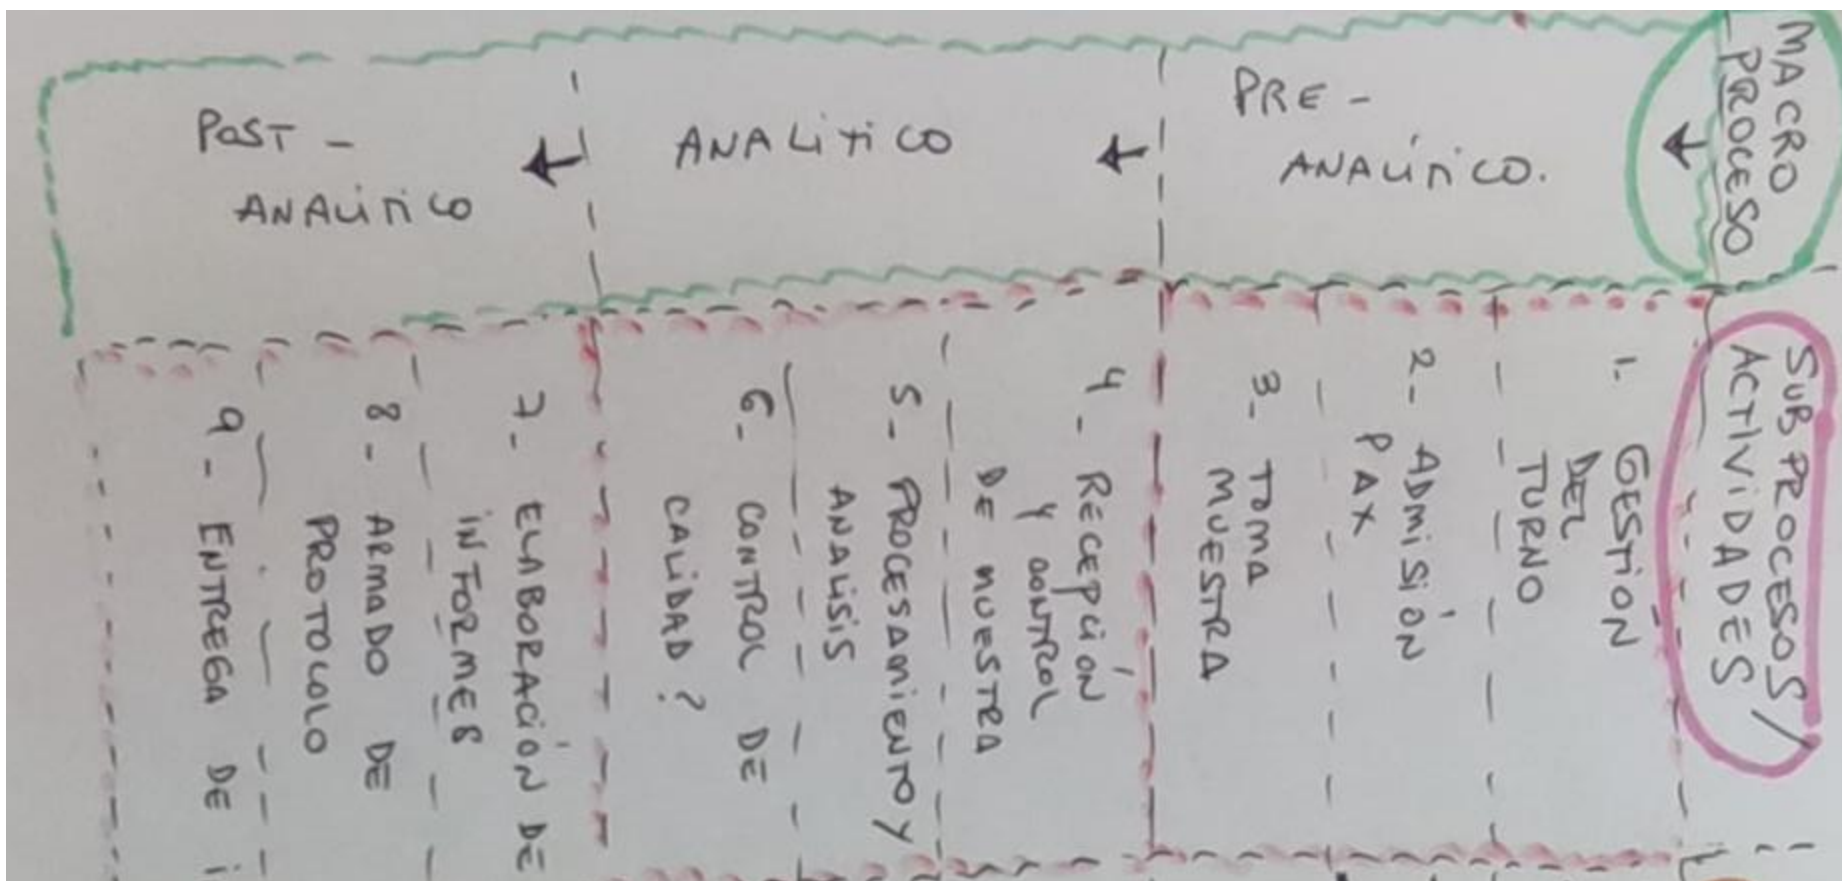 MACRO
PROCESO
PRE -
ANALÍTICO.
ANALITICO
POST -
ANALITICO
SUBPROCESOS/
ACTIVIDADES
1. GESTIÓN
DEL
TURNO
2- ADMISIÓN
PAX
3- TOMA
MUESTRA
4- RECEPCIÓN
Y CONTROL
DE MUESTRA
5- PROCESAMIENTO Y
ANALISIS
6- CONTROL DE
CALIDAD?
7- ELABORACIÓN DE
INFORMES
8- ARMADO DE
PROTOCOLO
9- ENTREGA DE i